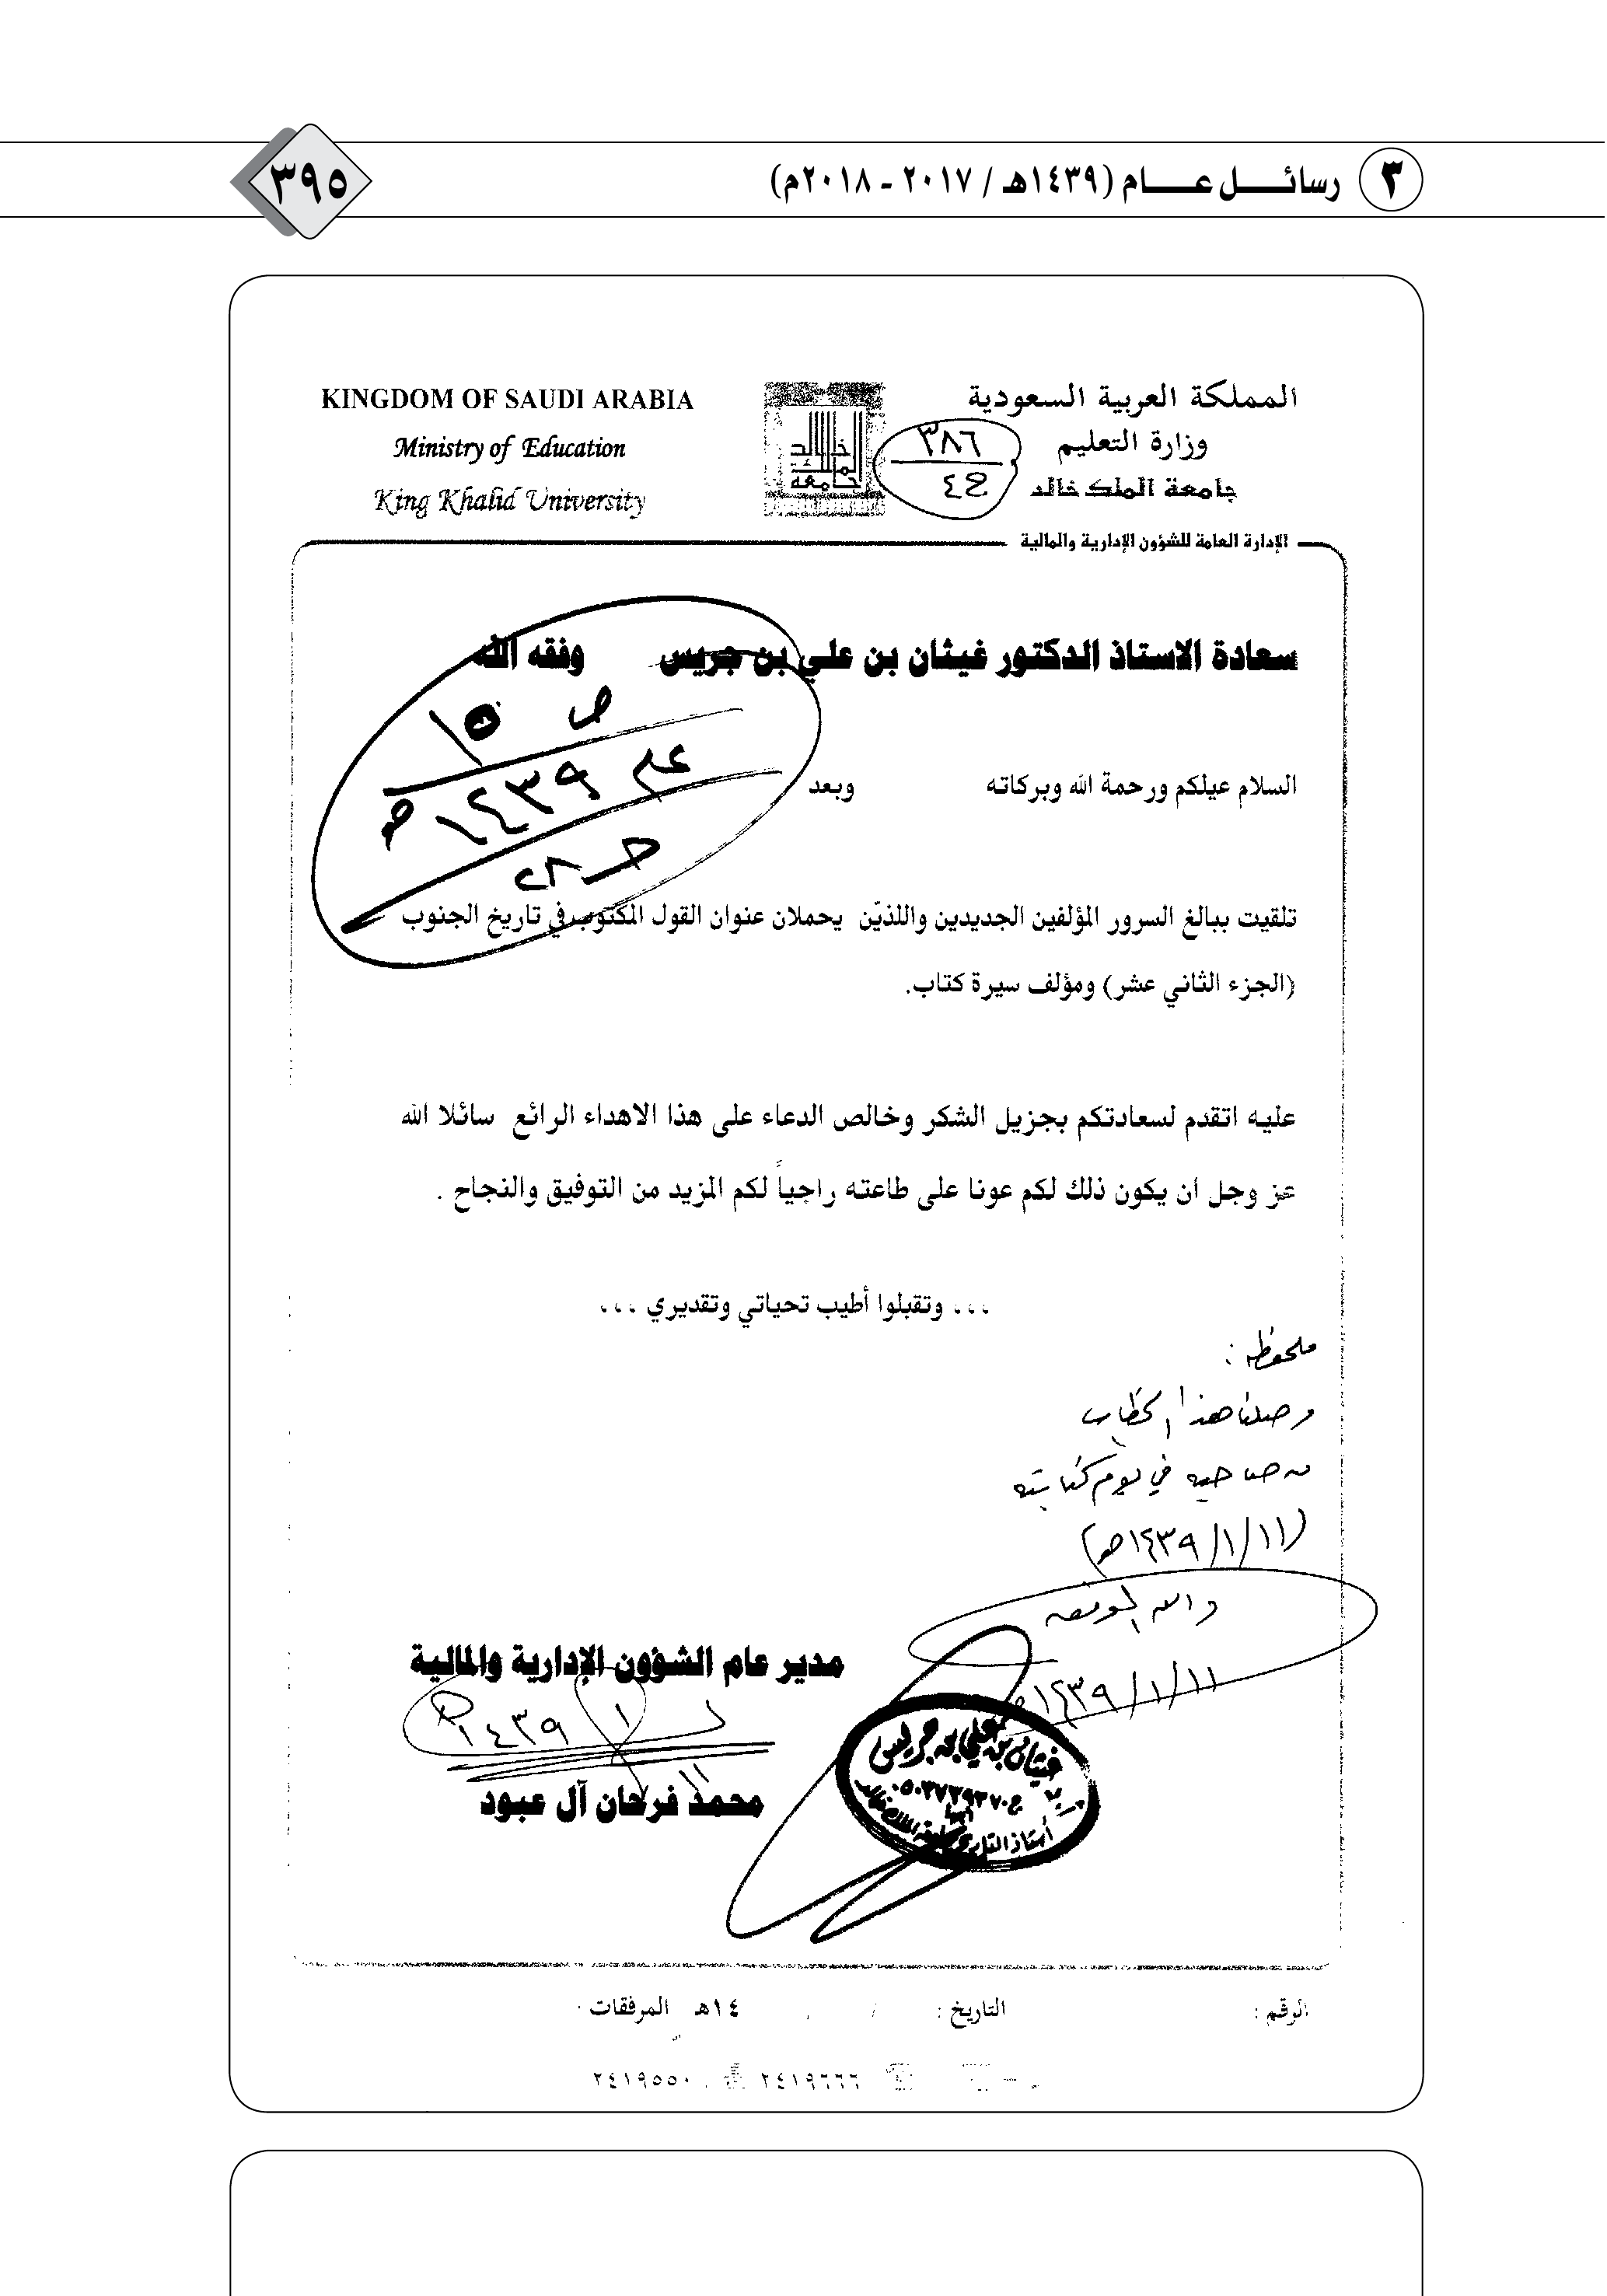 ٣ رسائل عام (١٤٣٩هـ / ٢٠١٧ - ٢٠١٨م)
٣٩٥
المملكة العربية السعودية
وزارة التعليم
جامعة الملك خالد
KINGDOM OF SAUDI ARABIA
Ministry of Education
King Khalid University
جامعة الملك خالد
٣٨٦
الإدارة العامة للشؤون الإدارية والمالية
سعادة الاستاذ الدكتور غيثان بن علي بن جريس وفقه الله
ص ١٥
عام ١٤٣٩هـ
السلام عيلكم ورحمة الله وبركاته وبعد
تلقيت ببالغ السرور المؤلفين الجديدين واللذيّن يحملان عنوان القول المكتوب في تاريخ الجنوب
(الجزء الثاني عشر) ومؤلف سيرة كتاب.
عليه اتقدم لسعادتكم بجزيل الشكر وخالص الدعاء على هذا الاهداء الرائع سائلا الله
عز وجل ان يكون ذلك لكم عونا على طاعته راجياً لكم المزيد من التوفيق والنجاح .
،،، وتقبلوا أطيب تحياتي وتقديري ،،،
ملحوظة :
وصلنا هذا الخطاب
من صاحبه في يوم كتابته
(١١/١/١٤٣٩هـ)
والله الموفق
١١/١/١٤٣٩هـ
مدير عام الشؤون الإدارية والمالية
١١/١/١٤٣٩
محمد فرحان آل عبود
غيثان بن علي بن جريس
أبها
أستاذ التاريخ بجامعة الملك خالد
الرقم :
التاريخ : / / ١٤هـ
المرفقات
٢٤١٩٦٦٦
٢٤١٩٥٥٠